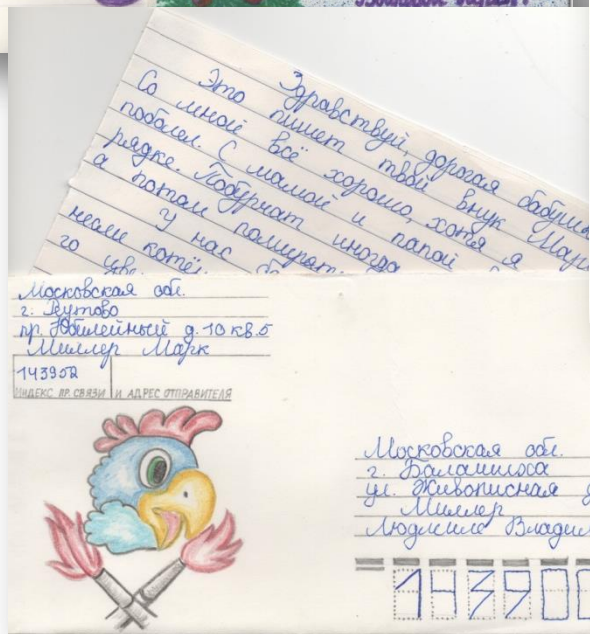 Здравствуй, дорогая бабушк
Это пишет твой внук Марк
Со мной всё хорошо, хотя я
поболел. С мамой и папой
рядке. Побурчат иногда
а потом помирят
У нас
несли котён
го уве
Московская обл.
г. Рутово
пр. Юбилейный д. 10 кв. 5
Миллер Марк
143952
ИНДЕКС ПР. СВЯЗИ И АДРЕС ОТПРАВИТЕЛЯ
Московская обл.
г. Балашихоса
ул. Живописная д
Миллер
Людмиле Владим
14390